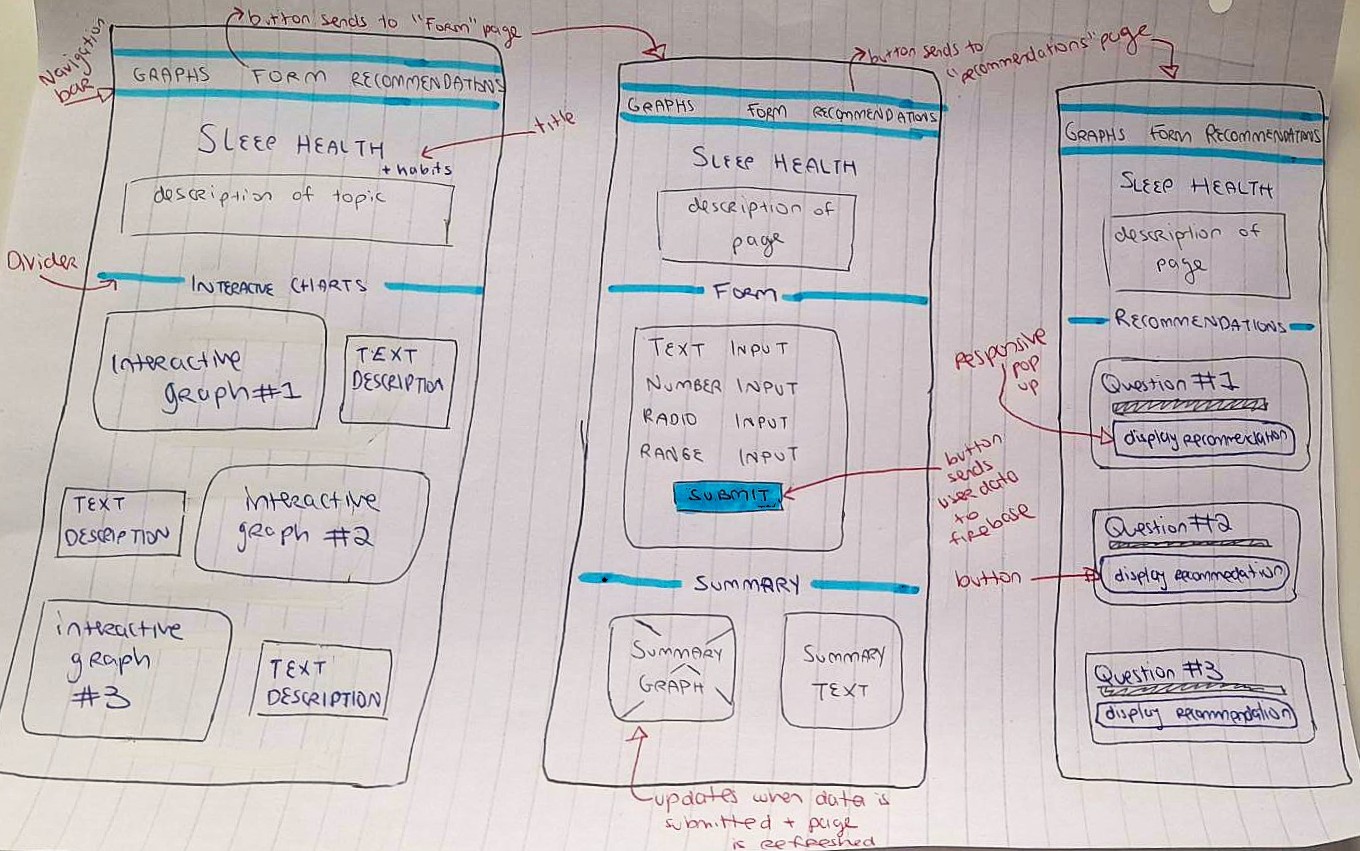 Navigation
bar
button sends to "Form" page
GRAPHS FORM RECOMMENDATIONS
title
SLEEP HEALTH
+ habits
description of topic
Divider
INTERACIVE CHARTS
Interactive
graph #1
TEXT
DESCRIPTION
TEXT
DESCRIPTION
interactive
graph #2
interactive
graph
#3
TEXT
DESCRIPTION
button sends to
"recommendations" page
GRAPHS FORM RECOMMENDATIONS
SLEEP HEALTH
description of
page
FORM
TEXT INPUT
NUMBER INPUT
RADIO INPUT
RANGE INPUT
SUBMIT
button
sends
user data
to
firebase
SUMMARY
SUMMARY
GRAPH
SUMMARY
TEXT
updates when data is
submitted + page
is refreshed
GRAPHS FORM RECOMMENDATIONS
SLEEP HEALTH
description of
page
RECOMMENDATIONS
Responsive
pop
up
Question #1
display recommendation
Question #2
button
display recommedation
Question #3
display recommendation